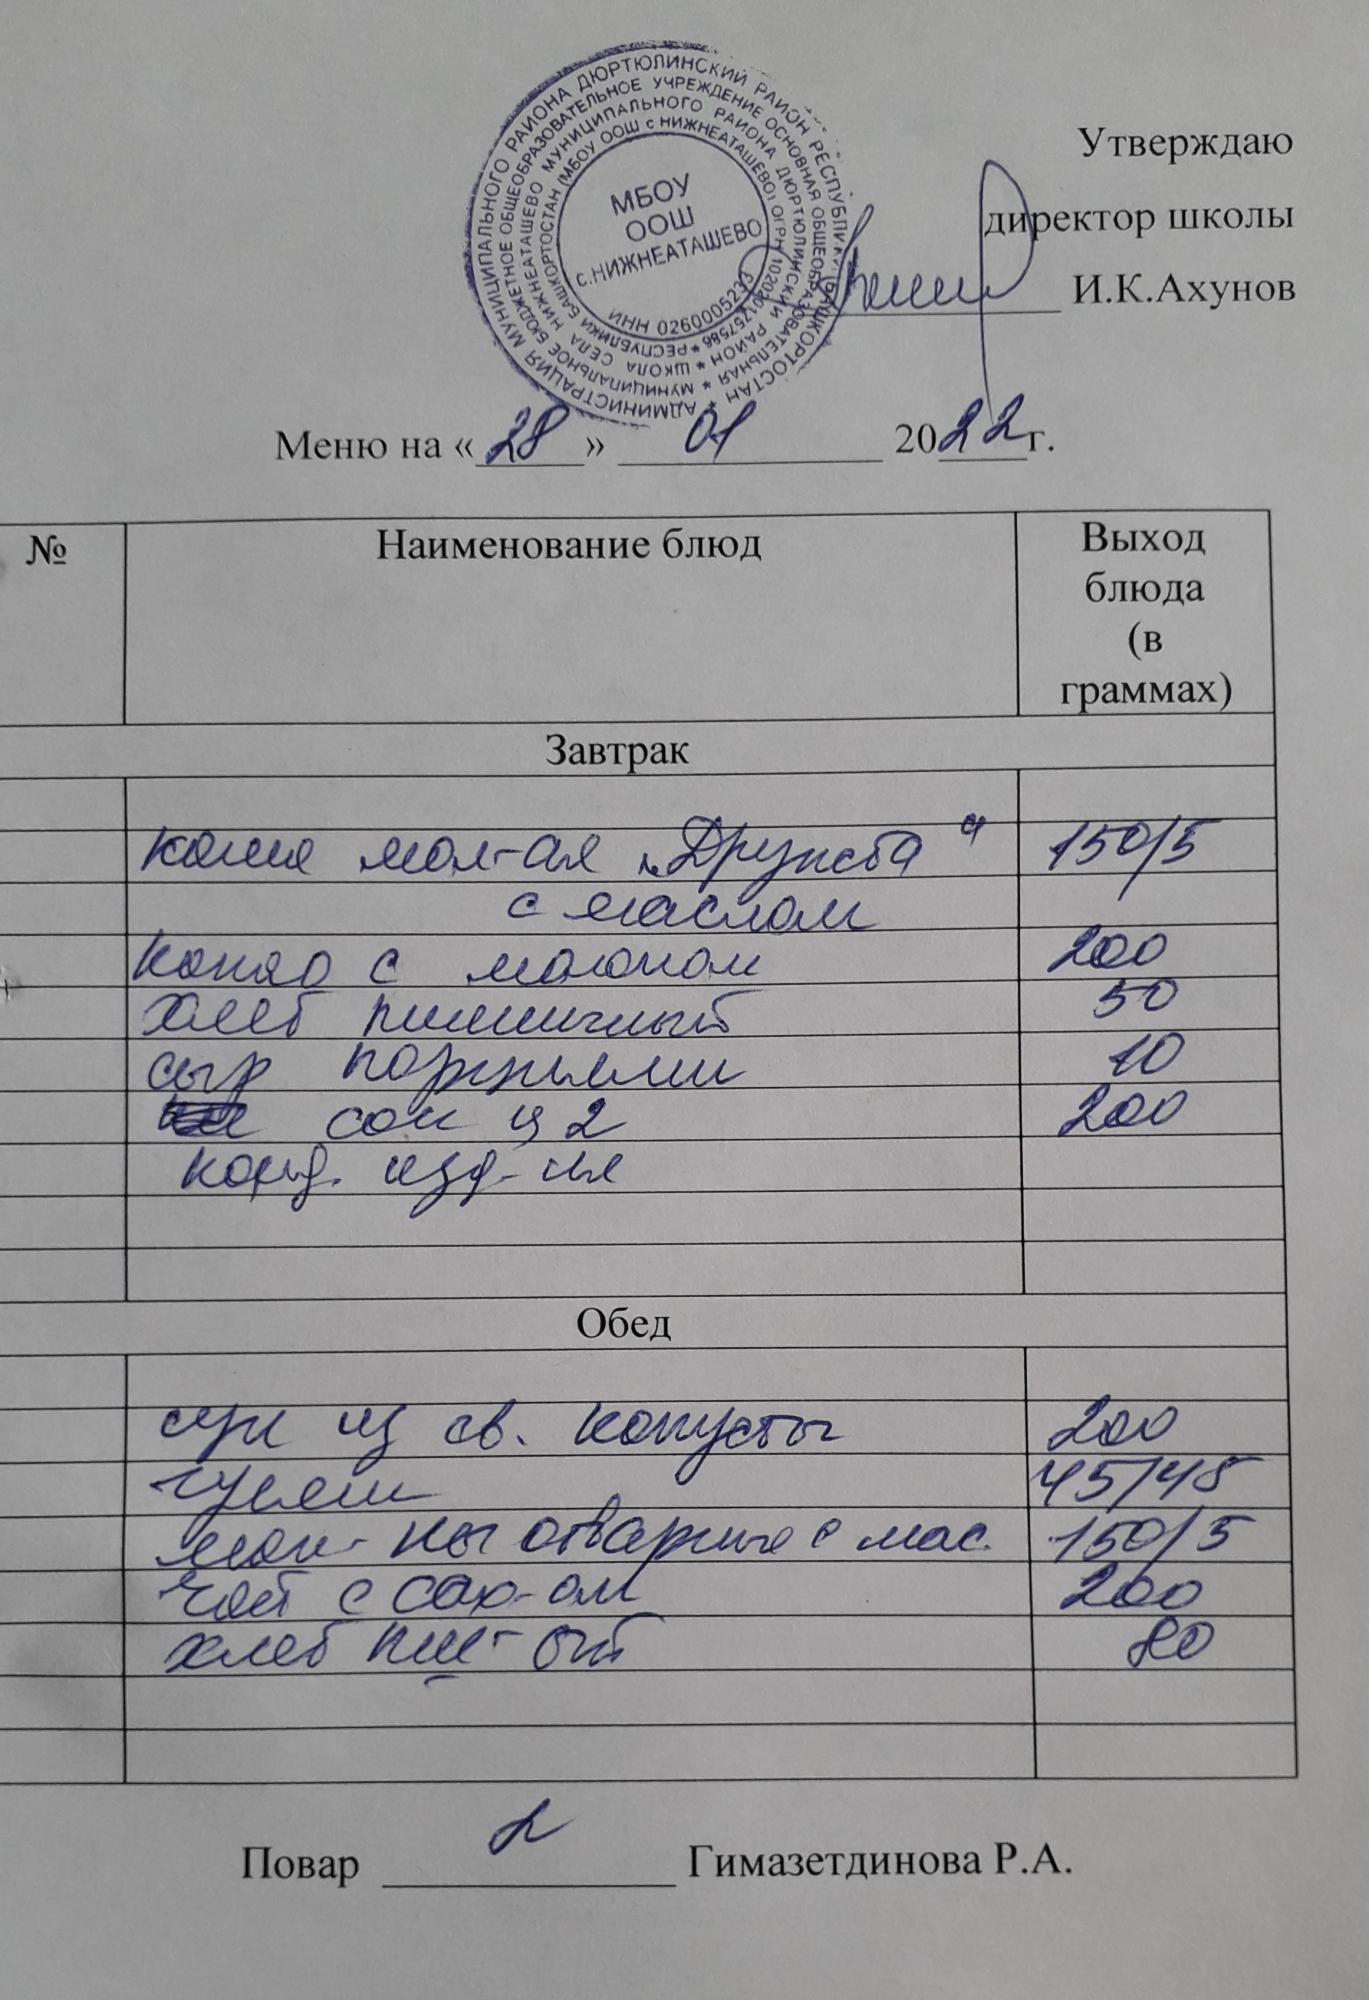 АДМИНИСТРАЦИЯ МУНИЦИПАЛЬНОГО РАЙОНА ДЮРТЮЛИНСКИЙ РАЙОН РЕСПУБЛИКИ БАШКОРТОСТАН *
МУНИЦИПАЛЬНОЕ БЮДЖЕТНОЕ ОБЩЕОБРАЗОВАТЕЛЬНОЕ УЧРЕЖДЕНИЕ ОСНОВНАЯ ОБЩЕОБРАЗОВАТЕЛЬНАЯ *
ШКОЛА СЕЛА НИЖНЕАТАШЕВО МУНИЦИПАЛЬНОГО РАЙОНА ДЮРТЮЛИНСКИЙ РАЙОН *
РЕСПУБЛИКИ БАШКОРТОСТАН (МБОУ ООШ с НИЖНЕАТАШЕВО) ОГРН 1020201757586 *
МБОУ
ООШ
с.НИЖНЕАТАШЕВО
ИНН 0260005233
Утверждаю
директор школы
И.К.Ахунов
Меню на «28» 01 2022г.
№ Наименование блюд Выход
блюда
(в
граммах)
Завтрак
каша мол-ая „Дружба“ 150/5
с маслом
какао с молоком 200
хлеб пшеничный 50
сыр порциями 10
сок 200
конд. изд-ия
Обед
суп из св. капусты 200
гуляш 45/45
мак-ны отварные с мас. 150/5
чай с сах-ом 200
хлеб пш-ый 80
Повар Гимазетдинова Р.А.